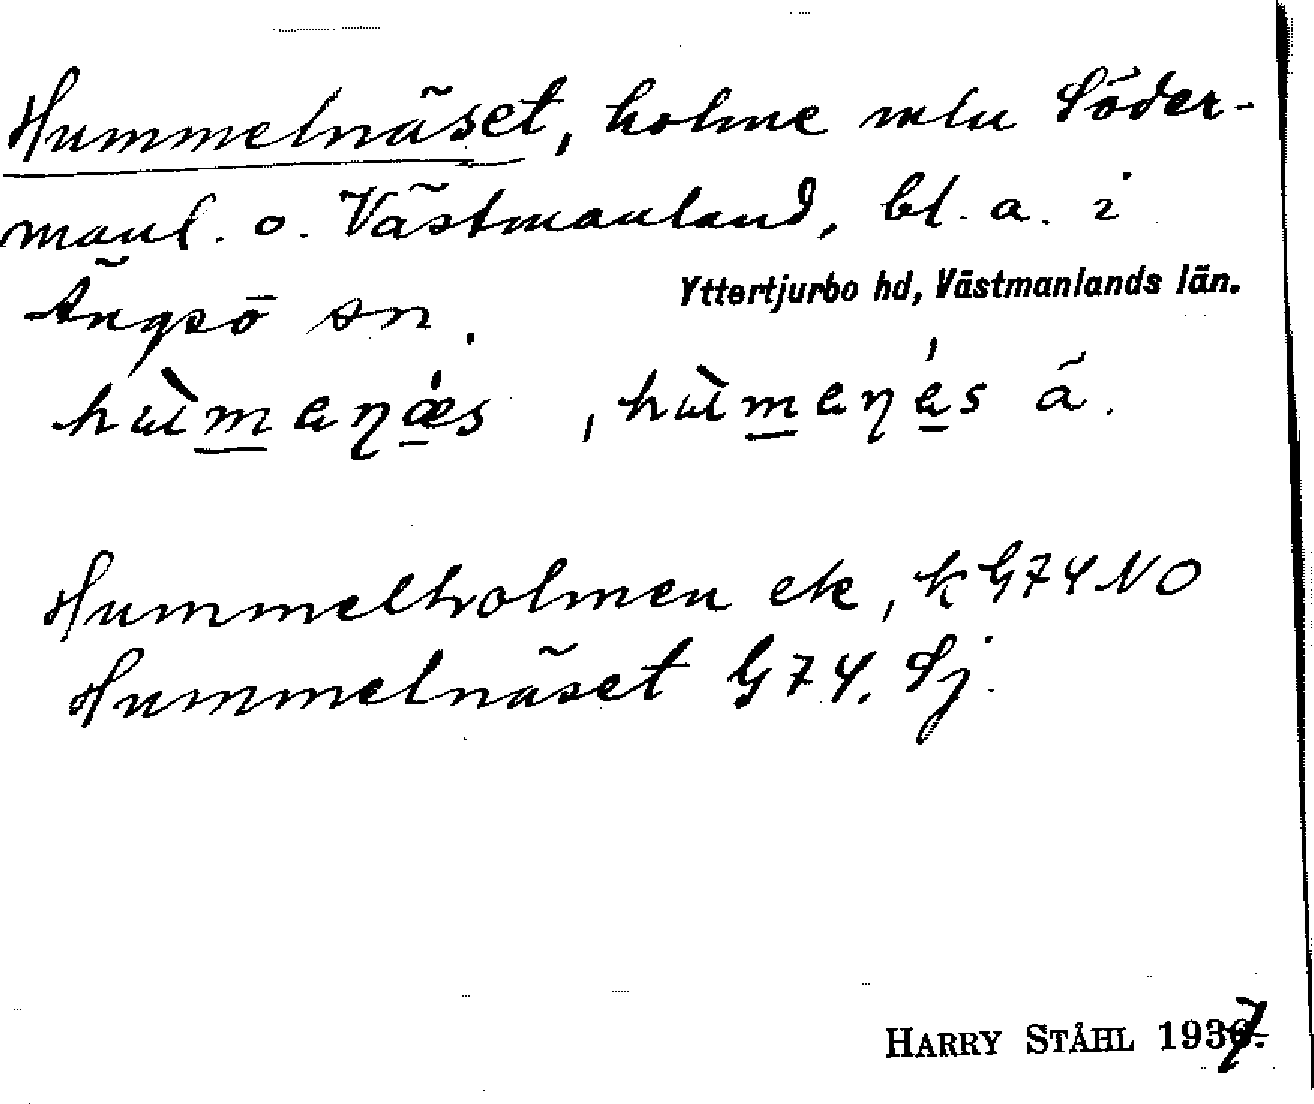 Hummelnäset, holme mln Söder-
manl. o. Västmanland, bl. a. i
Ängsö sn.
Yttertjurbo hd, Västmanlands län.
hùmeṇæ´s, hùmeṇás ä.
Hummelholmen ek, k G74 NO
Hummelnäset G74. Sj.
HARRY STÅHL 1937